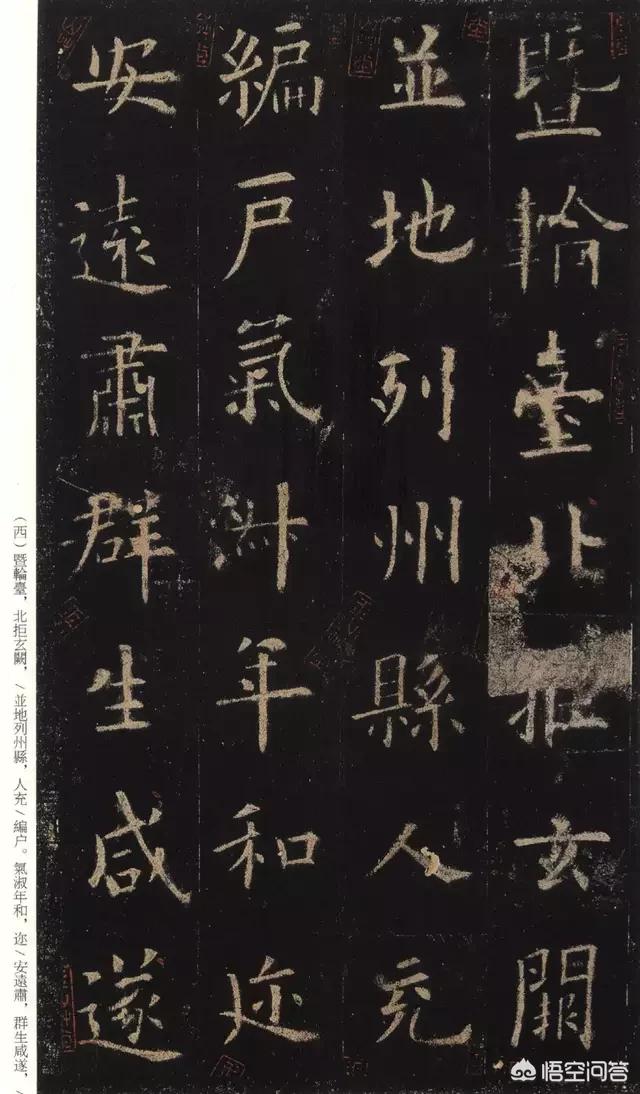 暨輪臺北拒玄闕
並地列州縣人充
編戶氣淑年和迩
安遠肅群生咸遂
（西）暨輪臺，北拒玄闕，/並地列州縣，人充/編户。氣淑年和，迩/安遠肅，群生咸遂，/
悟空问答